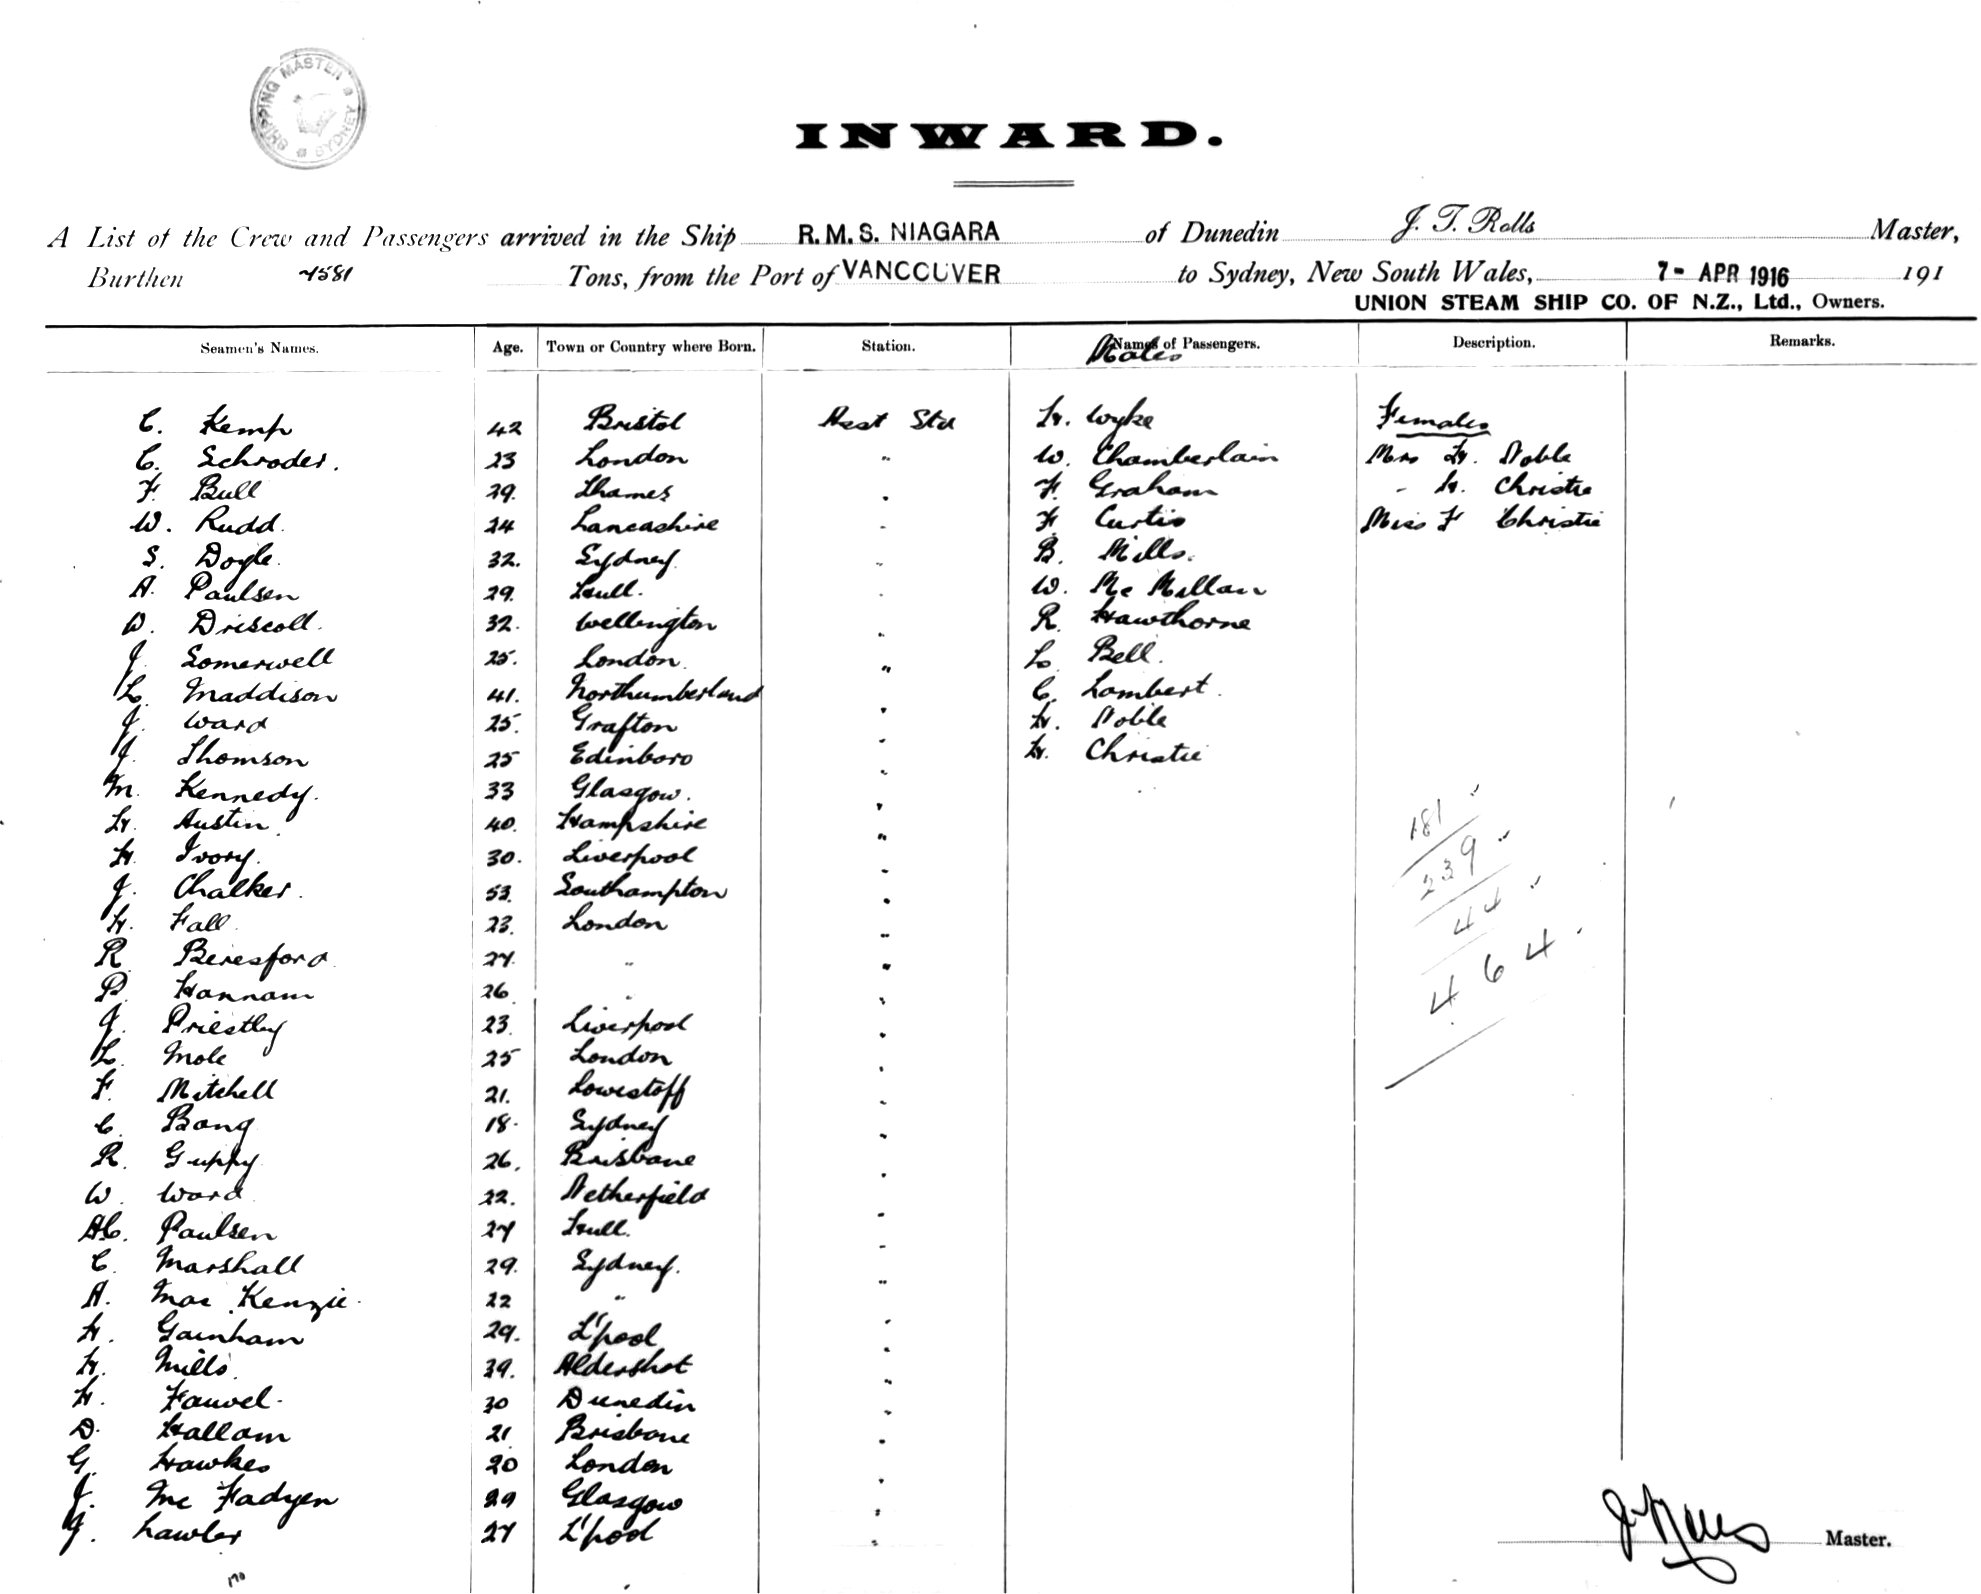 SHIPPING MASTER
SYDNEY
INWARD.
A List of the Crew and Passengers arrived in the Ship R.M.S. NIAGARA of Dunedin J. T. Rolls Master,
Burthen 7581 Tons, from the Port of VANCOUVER to Sydney, New South Wales, 7- APR 1916 191
UNION STEAM SHIP CO. OF N.Z., Ltd., Owners.
Seamen's Names. Age. Town or Country where Born. Station. Names of Passengers. Description. Remarks.
Males
C. Kemp 42 Bristol Asst Std H. Wyke Females
C. Schroder. 23 London " W. Chamberlain Mrs H. Noble
F. Bull 29. Thames " F. Graham " H. Christie
W. Rudd. 24 Lancashire " F. Curtis Miss F Christie
S. Doyle. 32. Sydney " B. Mills.
A. Paulsen 29. Hull. " W. Mc Millan
D. Driscoll. 32. Wellington " R. Hawthorne
J. Somerwell 25. London. " L. Bell.
L. Maddison 41. Northumberland " C. Lambert.
J. Ward 25. Grafton " H. Noble
J. Thomson 25 Edinboro " H. Christie
M. Kennedy. 33 Glasgow. "
H. Austin. 40. Hampshire "
H. Ivory. 30. Liverpool "
J. Chalker. 53. Southampton "
H. Fall. 23. London "
R. Beresford 27. " "
P. Hannam 26 " "
J. Priestley 23. Liverpool "
L. Mole 25 London "
F. Mitchell 21. Lowestoff "
C. Bang 18. Sydney "
R. Guppy 26. Brisbane "
W. Ward 22. Netherfield "
AC. Paulsen 27 Hull. "
C. Marshall 29. Sydney. "
A. Mac Kenzie. 22 " "
H. Gainham 29. L'pool "
H. Mills. 39. Aldershot "
H. Fauvel. 30 Dunedin "
D. Hallam 21 Brisbane "
G. Hawkes 20 London "
J. Mc Fadyen 29 Glasgow "
J. Lawler 27 L'pool "
181
239
44
464
J. Rolls Master.